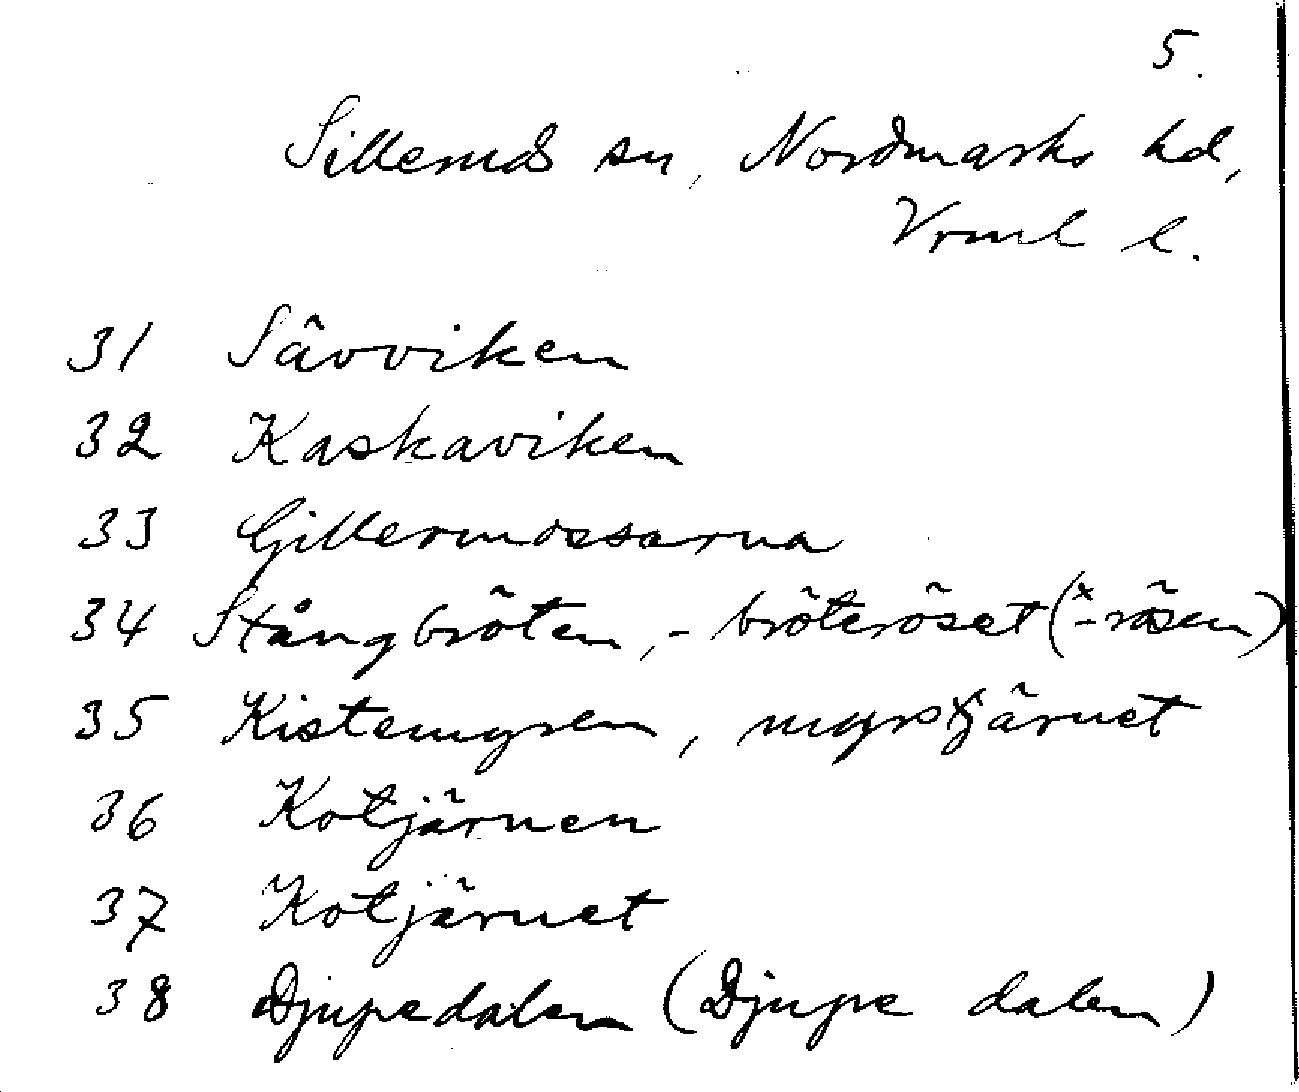 5.
Sillerud sn, Nordmarks hd,
Vrml l.
31 Sävviken
32 Kaskaviken
33 Gillermossarna
34 Stångbröten, -bröteröset (*-rösen)
35 Kistemyren, myrstjärnet
36 Kotjärnen
37 Kotjärnet
38 Djupedalen (Djupe dalen)